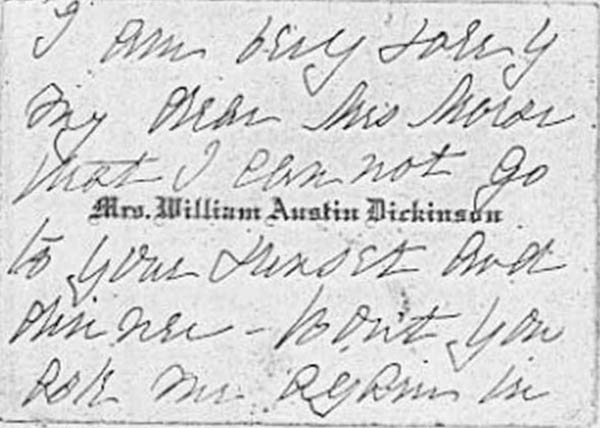 I am very sorry
my dear Mrs Morse
that I can not go
Mrs. William Austin Dickinson
to your sunset and
dinner - Won't you
ask me again in